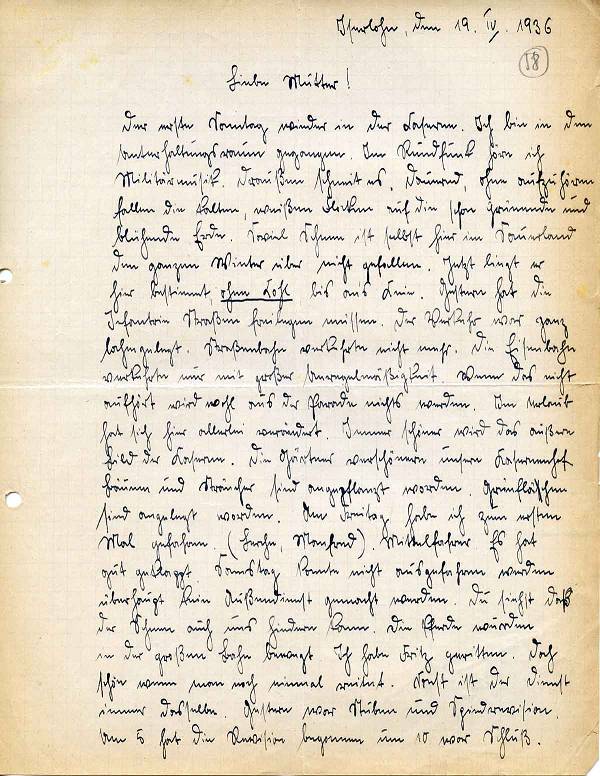 Iserlohn, den 19. IV. 1936
58
Liebe Mutter!
Der erste Sonntag wieder in der Kaserne. Ich bin in den
Unterhaltungsraum gegangen. Im Rundfunk höre ich
Militärmusik. Draußen schneit es. Dauernd, ohne aufzuhören
fallen die kalten, weißen Flocken auf die schon grünende und
blühende Erde. Soviel Schnee ist selbst hier im Sauerland
den ganzen Winter über nicht gefallen. Jetzt liegt er
hier bestimmt ohne Kohl bis ans Knie. Gestern hat die
Infanterie Straßen freilegen müssen. Der Verkehr war ganz
lahmgelegt. Straßenbahn verkehrte nicht mehr. Die Eisenbahn
verkehrte nur mit großer Unregelmäßigkeit. Wenn das nicht
aufhört wird wohl aus der Parade nichts werden. Im Urlaub
hat sich hier allerlei verändert. Immer schöner wird das äußere
Bild der Kaserne. Die Gärtner verschönern unsern Kasernenhof
Bäume und Sträucher sind angepflanzt worden. Grünflächen
sind angelegt worden. Am Freitag habe ich zum ersten
Mal gefahren (Lerche, Manfred). Mittelfahrer Es hat
gut geklappt. Samstag konnte nicht ausgefahren werden
überhaupt kein Außendienst gemacht werden. Du siehst daß
der Schnee auch uns hindern kann. Die Pferde wurden
in der großen Bahn bewegt Ich habe Fritz geritten. Doch
schön wenn man noch einmal reitet. Sonst ist der Dienst
immer dasselbe. Gestern war Stuben und Spindrevision.
Um 5 hat die Revision begonnen um 10 war Schluß.